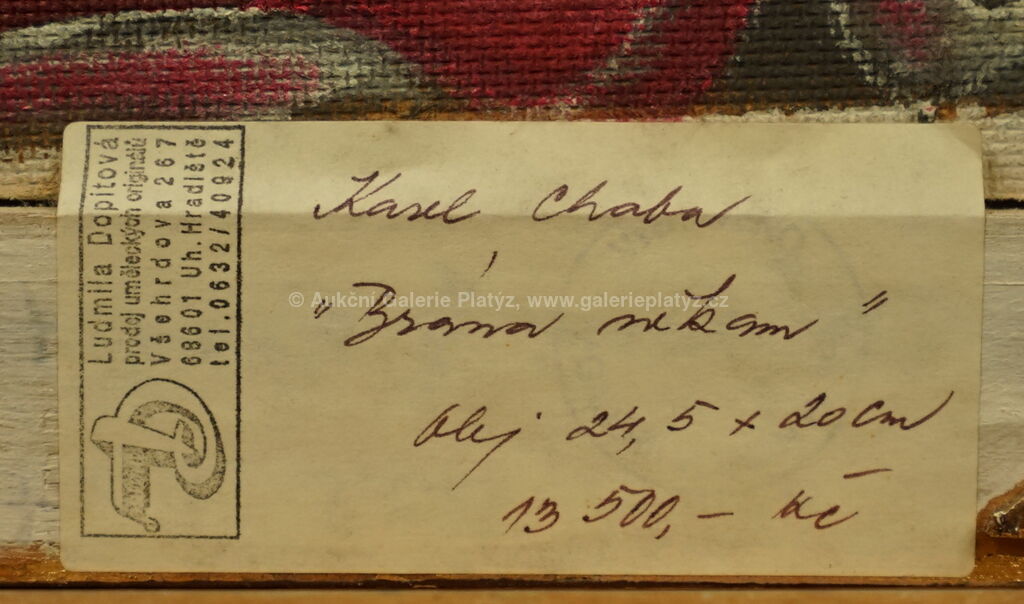 Ludmila Dopitová
prodej uměleckých originálů
Všehrdova 267
68601 Uh. Hradiště
tel. 0632/40924
Karel Chaba
© Aukční Galerie Platýz, www.galerieplatyz.cz
"Brána někam"
olej 24,5 x 20 cm
13 500,- Kč